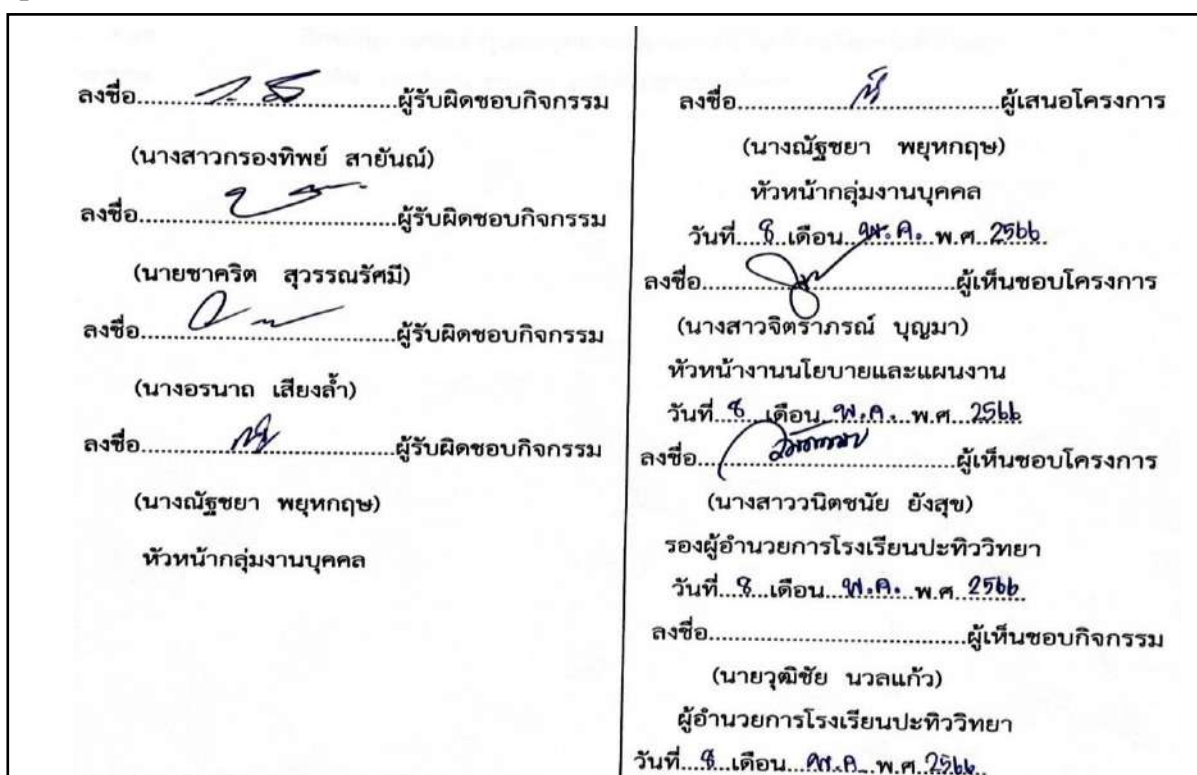 ลงชื่อ..............................ผู้รับผิดชอบกิจกรรม
(นางสาวกรองทิพย์ สายันณ์)
ลงชื่อ..............................ผู้รับผิดชอบกิจกรรม
(นายชาคริต สุวรรณรัศมี)
ลงชื่อ..............................ผู้รับผิดชอบกิจกรรม
(นางอรนาถ เสียงล้ำ)
ลงชื่อ..............................ผู้รับผิดชอบกิจกรรม
(นางณัฐชยา พยุหกฤษ)
หัวหน้ากลุ่มงานบุคคล
ลงชื่อ..............................ผู้เสนอโครงการ
(นางณัฐชยา พยุหกฤษ)
หัวหน้ากลุ่มงานบุคคล
วันที่...8...เดือน...พ.ค....พ.ศ...2566
ลงชื่อ..............................ผู้เห็นชอบโครงการ
(นางสาวจิตราภรณ์ บุญมา)
หัวหน้างานนโยบายและแผนงาน
วันที่...8...เดือน...พ.ค....พ.ศ...2566
ลงชื่อ..............................ผู้เห็นชอบโครงการ
(นางสาววนิตชนัย ยังสุข)
รองผู้อำนวยการโรงเรียนปะทิววิทยา
วันที่...8...เดือน...พ.ค....พ.ศ...2566
ลงชื่อ..............................ผู้เห็นชอบกิจกรรม
(นายวุฒิชัย นวลแก้ว)
ผู้อำนวยการโรงเรียนปะทิววิทยา
วันที่...8...เดือน...พ.ค...พ.ศ.2566